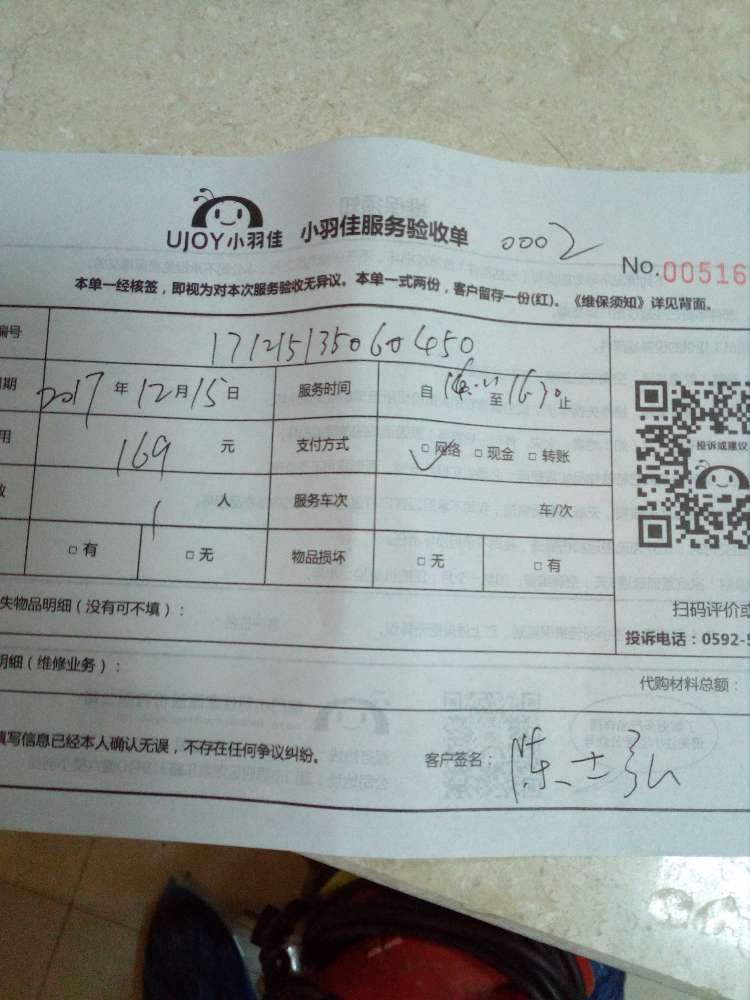 UJOY小羽佳 小羽佳服务验收单 0002
No.00516
本单一经核签，即视为对本次服务验收无异议。本单一式两份，客户留存一份(红)。《维保须知》详见背面。
编号 171215135060450
期 2017 年 12 月 15 日 服务时间 自 至 16:30 止
用 169 元 支付方式 □网络 □现金 □转账
数 1 人 服务车次 车/次
□有 □无 物品损坏 □无 □有
投诉或建议
扫码评价或
投诉电话：0592-5
失物品明细（没有可不填）：
明细（维修业务）：
代购材料总额：
填写信息已经本人确认无误，不存在任何争议纠纷。
客户签名：陈士弘